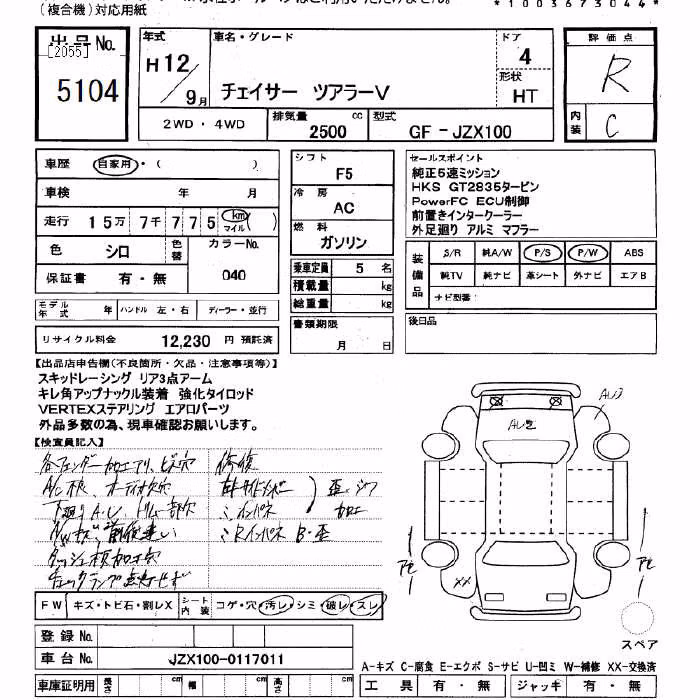 (複合機)対応用紙
*1003673044*
出品No.
[2055]
5104
年式
H12/9月
車名・グレード
チェイサー ツアラーV
ドア
4
形状
HT
評価点
R
内装
C
2WD・4WD
排気量
2500 cc
型式
GF-JZX100
車歴 自家用・( )
車検 年 月
走行 15万 7千 7 7 5 km マイル ( )
色 シロ 色替 カラーNo.
保証書 有・無 040
モデル年式 年 ハンドル 左・右 ディーラー・並行
リサイクル料金 12,230 円 預託済
シフト
F5
冷房
AC
燃料
ガソリン
乗車定員 5 名
積載量 kg
総重量 kg
書類期限
月 日
セールスポイント
純正5速ミッション
HKS GT2835タービン
PowerFC ECU制御
前置きインタークーラー
外足廻り アルミ マフラー
装備品
S/R 純A/W P/S P/W ABS
純TV 純ナビ 革シート 外ナビ エアB
ナビ型番:
後日品
【出品店申告欄(不良箇所・欠品・注意事項等)】
スキッドレーシング リア3点アーム
キレ角アップナックル装着 強化タイロッド
VERTEXステアリング エアロパーツ
外品多数の為、現車確認お願いします。
【検査員記入】
各フェンダー加工アリ、ビス穴
修復
下廻りAU トリム一部穴
ダッシュ板加工穴
チェックランプ点灯せず
加工
FW キズ・トビ石・割レX シート内装 コゲ・穴・汚レ・シミ・破レ・スレ
登録No.
車台No. JZX100-0117011
車庫証明用 長さ cm 幅 cm 高さ cm
AU2
XX
スペア
A-キズ C-腐食 E-エクボ S-サビ U-凹ミ W-補修 XX-交換済
工具 有・無 ジャッキ 有・無